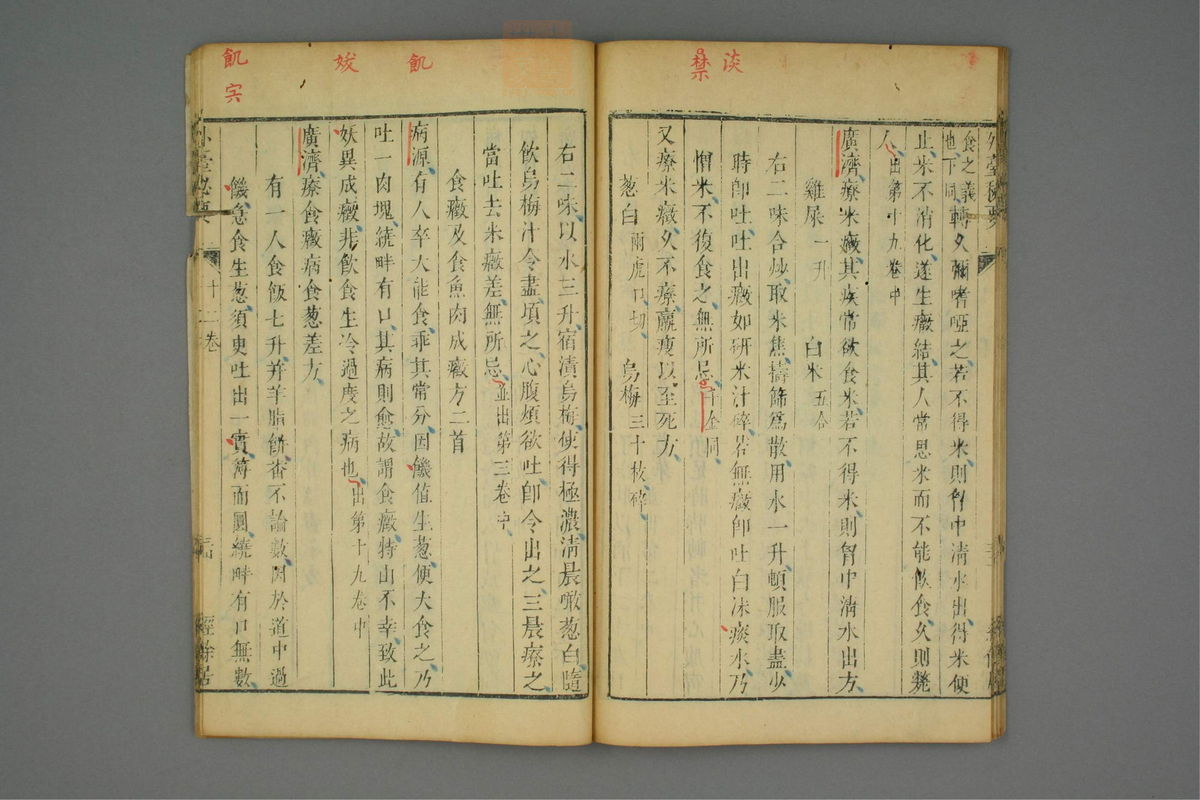 淡
禁
外臺秘要
食之義
也下同
轉久彌嗜啞之若不得米則胷中清水出得米便
止米不消化遂生癥結其人常思米而不能飲食久則斃
人出第十九卷中
廣濟療米癥其疾常欲食米若不得米則胷中清水出方
雞屎一升 白米五合
右二味合炒取米焦擣篩為散用水一升頓服取盡少
時卽吐吐出癥如研米汁碎若無癥卽吐白沫痰水乃
憎米不復食之無所忌千金同
又療米癥久不療羸瘦以至死方
葱白兩虎口切 烏梅三十枚碎
飢
媻
飢
宍
右二味以水三升宿漬烏梅使得極濃清晨噉葱白隨
飲烏梅汁令盡頃之心腹煩欲吐卽令出之三晨療之
當吐去米癥差無所忌並出第三卷中
食癥及食魚肉成癥方二首
病源有人卒大能食乖其常分因饑值生葱便大食之乃
吐一肉塊繞畔有口其病則愈故謂食癥特由不幸致此
妖異成癥非飲食生冷過度之病也出第十九卷中
廣濟療食癥病食葱差方
有一人食飯七升并羊脂餅番不論數因於道中過
饑急食生葱須臾吐出一實物而圓繞畔有口無數
外臺秘要
十二卷
經餘居